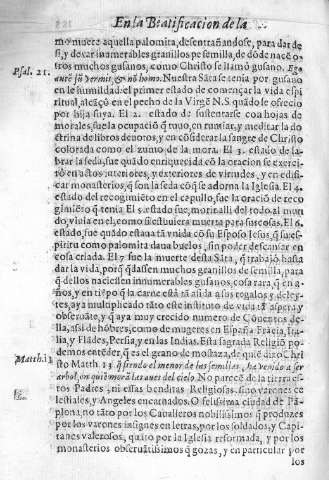 En la Beatificacion de la
mo muere aquella palomita, desentrañandose, para dar de
si, y dexar innumerables granillos pe semilla, de dõde nacẽ o-
tros muchos gusanos, como Christo se llamó gusano. Ego
Psal. 21.
autẽ sũ vermis, & nõ homo. Nuestra Sãta se tenia por gusano
en la humildad: el primer estado de començar la vida espi
ritual, a
en el pecho de la Virgẽ N.S. quãdo le ofrecio
por hija suya. El 2. estado de sustentarse cõ a hojas de
morales, fue la ocupaciõ q̃ tuuo, en rumiar, y meditar la do
ctrina de libros deuotos, y en cõsiderar la sangre de Christo
colorada como el zumo, de la mora. El 3. estado de la-
brar la seda, fue quãdo enriquecida cõ la oracion se exerci-
tò en actos interiores, y exteriores de virtudes, y en edifi-
car monasterios, q̃ son la seda cõ q̃ se adorna la Iglesia. El 4.
estado del recogimiẽto en el capullo, fue la oraciõ de reco
gimiẽto q̃ tenia El 5. estado fue, morir alli del todo al mun
do, viuia en el, como si estuuiera muerta para sus cosas. El 6.
estado, fue quãdo estaua tã vnida cõ su Esposo Iesus, q̃ su es-
piritu como palomita daua buelos, sin poder descansar en
cosa criada. El 7 fue la muerte desta Sãta, q̃ trabajó hasta
dar la vida, porq̃ q̃dassen muchos granillos de semilla, para
q̃ dellos naciessen innumerables gusanos, cosa rara, q̃ en a-
ños, y en tiẽpo q̃ la carne está tã asida a sus regalos y deley-
tes, aya multiplicado tãto este instituto de vida tã aspera y
obseruãte, y q̃ aya muy crecido numero de Cõuentos de-
lla, assi de hõbres, como de mugeres en España Frãcia, Ita-
lia, y Flãdes, Persia, y en las Indias. Esta sagrada Religiõ po-
demos entẽder, q̃ es el grano de mostaza, de quiẽ dixo Chri
Matth. 13.
sto Matth. 13 q̃ siendo el menor de las semillas, ha venido a ser
arbol, en quiẽ morã las aues del cielo. No parecẽ de la tierra es-
tos Padres, ni essas benditas Religiosas sino varones ce-
lestiales, y Angeles encarnados. O felissima ciudad de Pã-
plona, no tãto por los Caualleros nobilissimos q̃ produzes
por los varones insignes en letras, por los soldados, y Capi-
tanes valerosos, quãto por la Iglesia reformada, y por los
monasterios obseruãtissimos q̃ gozas, y en particular por
los